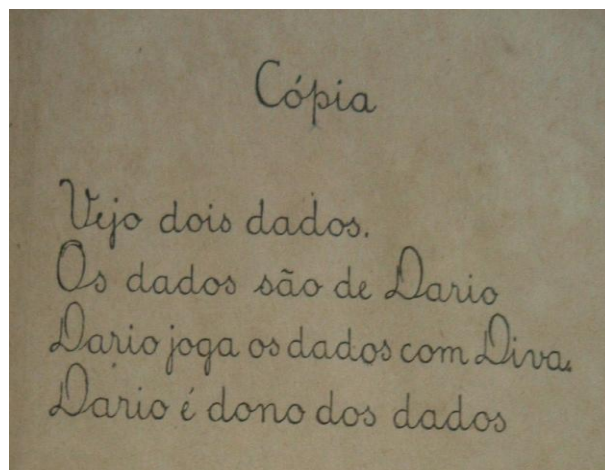 Cópia
Vejo dois dados.
Os dados são de Dario
Dario joga os dados com Diva.
Dario é dono dos dados